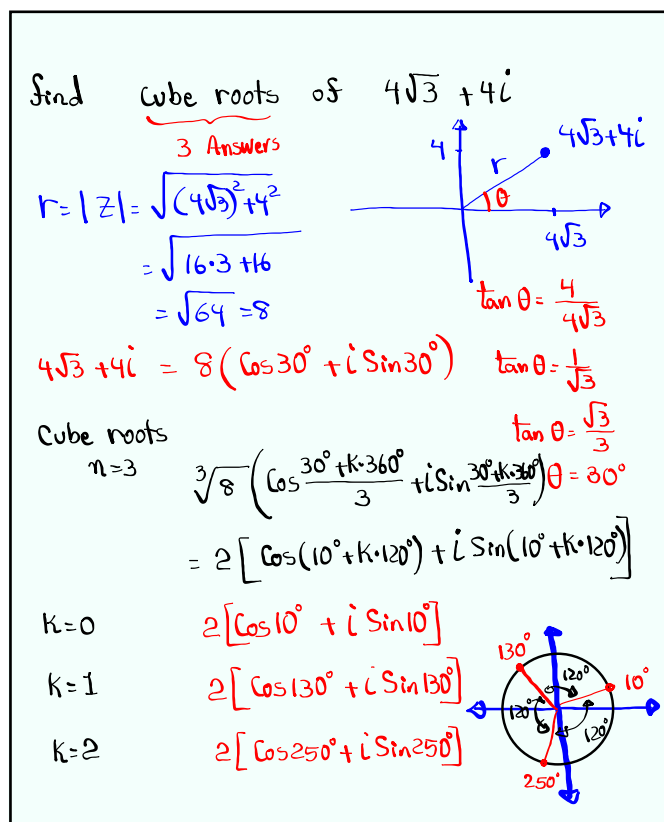 find cube roots of 4√3 + 4i
3 Answers
4
r
4√3+4i
θ
4√3
r = |z| = √((4√3)² + 4²)
= √(16·3 + 16)
= √64 = 8
tan θ = 4/(4√3)
4√3 + 4i = 8(Cos30° + i Sin30°)
tan θ = 1/√3
tan θ = √3/3
θ = 30°
Cube roots
n=3
³√8 (Cos (30°+K·360°)/3 + i Sin (30°+K·360°)/3)
= 2[Cos(10°+K·120°) + i Sin(10°+K·120°)]
K=0 2[Cos10° + i Sin10°]
K=1 2[Cos130° + i Sin130°]
K=2 2[Cos250° + i Sin250°]
130°
120°
10°
120°
120°
250°